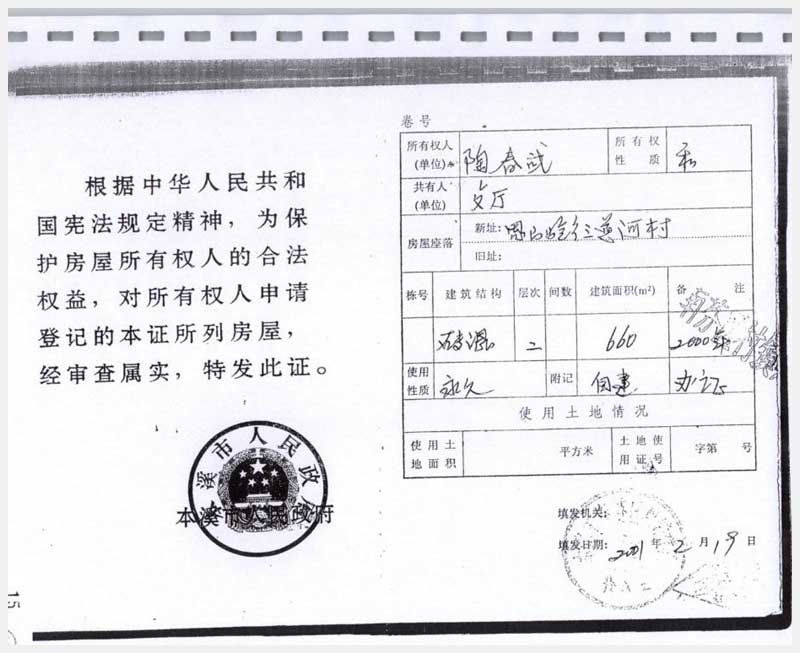 根据中华人民共和
国宪法规定精神，为保
护房屋所有权人的合法
权益，对所有权人申请
登记的本证所列房屋，
经审查属实，特发此证。
本溪市人民政府
本溪市人民政府
15
卷号
所有权人(单位) 陶春武 所有权性质 私
共有人(单位)
房屋座落 新址: 三道河村
旧址:
栋号 建筑结构 层次 间数 建筑面积(m²) 备注
砖混 二 660 2000年
使用性质 永久 附记 自建 办证
使用土地情况
使用土地面积 平方米 土地使用证号 字第 号
填发机关:
填发日期: 2001年2月19日